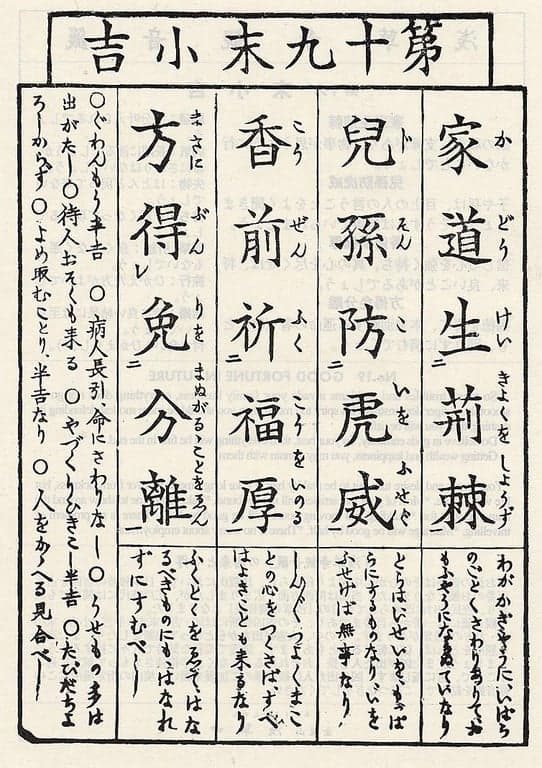 第十九末小吉
家道生二荊棘一
かどうけいきよくをしようず
わがかぎやうにいばら
のごとくさわりありてお
もふやうにならぬていなり
兒孫防二虎威一
じそんこいをふせぐ
とらはいせいをもつぱ
らにするものなりいを
ふせげば無事なり
香前祈二福厚一
こうぜんふくこうをいのる
しん〴〵つよくまこ
との心をつくさばすゑ
はよきことも来るなり
方得レ免二分離一
まさにぶんりをまぬがることをゑん
ふくとくをゑてはな
るべきものにもはなれ
ずにすむべし
○ぐわんもう半吉 ○病人長引、命にさわりなし ○うせもの多は
出がたし ○待人おそくも来る ○やづくりひきこし半吉 ○たびだちよ
ろしからず ○よめ取むことり、半吉なり ○人をかゝへる見合べし